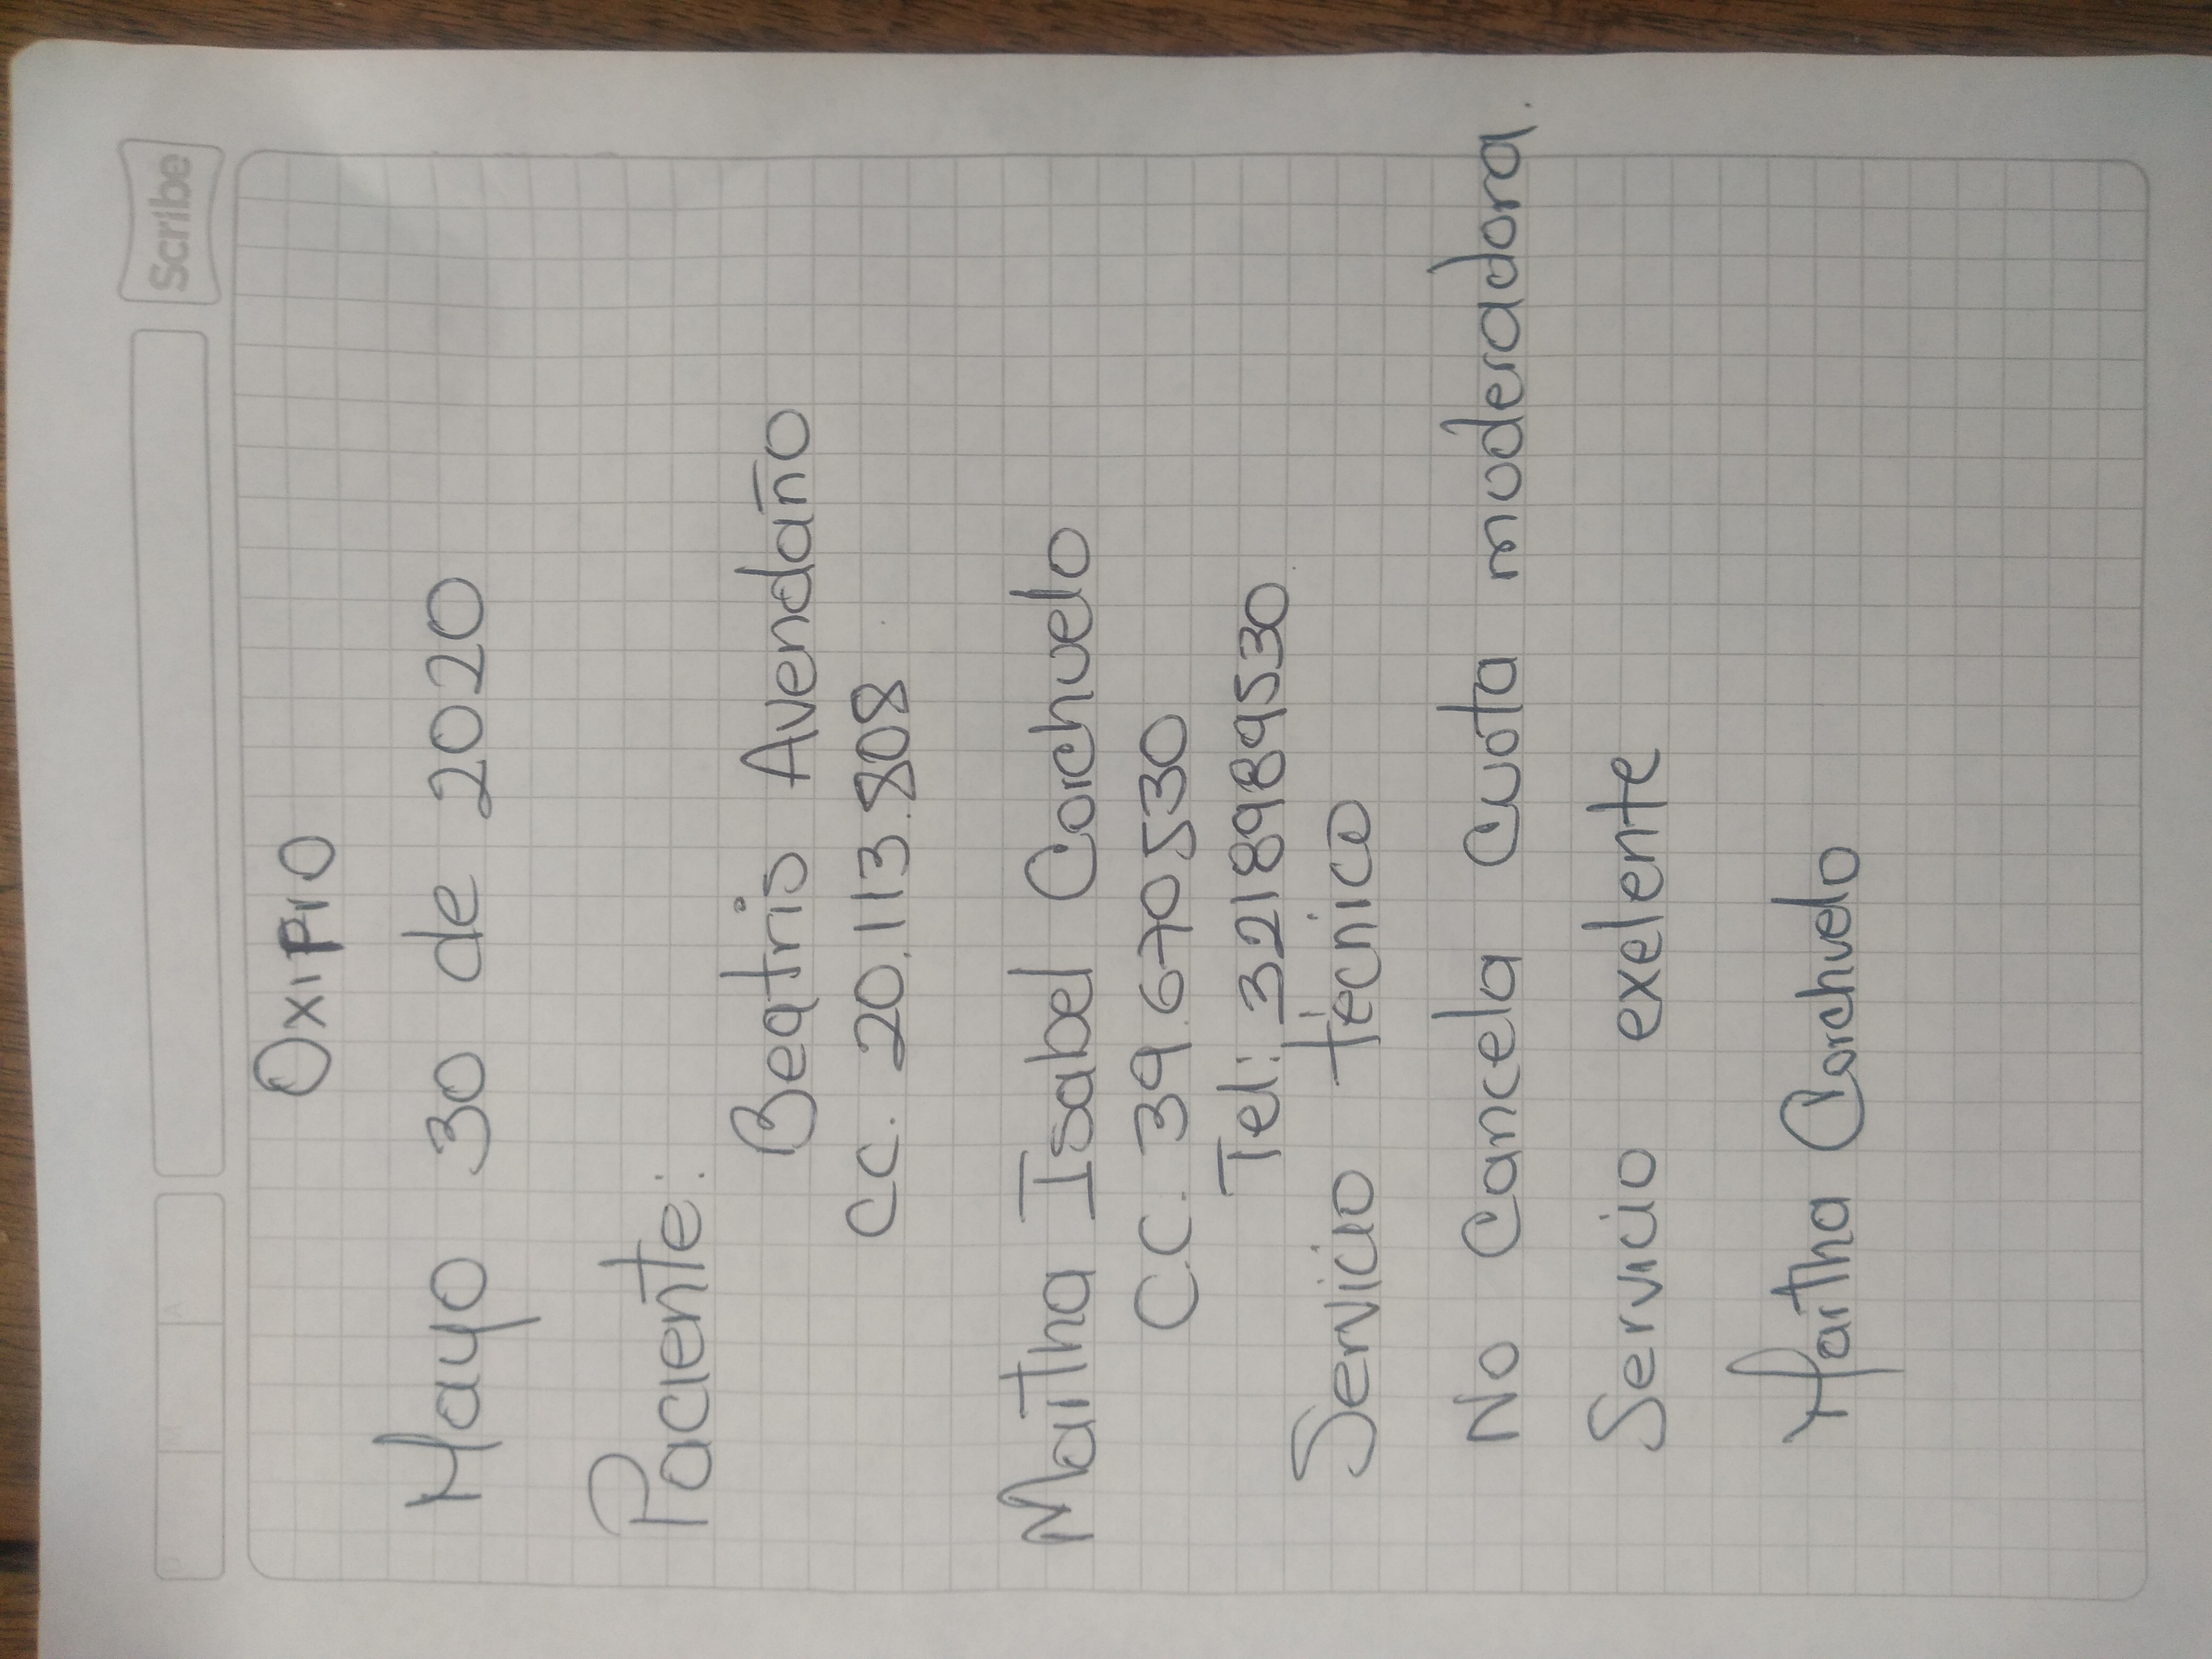 Scribe
D M A
OxiPrO
Mayo 30 de 2020
Paciente:
Beatris Avendaño
CC. 20.113.808
Martha Isabel Corchuelo
C.C. 39.670530
Tel: 3218989530
Servicio técnico
No Cancela Cuota moderadora.
Servicio exelente
Martha Corchuelo